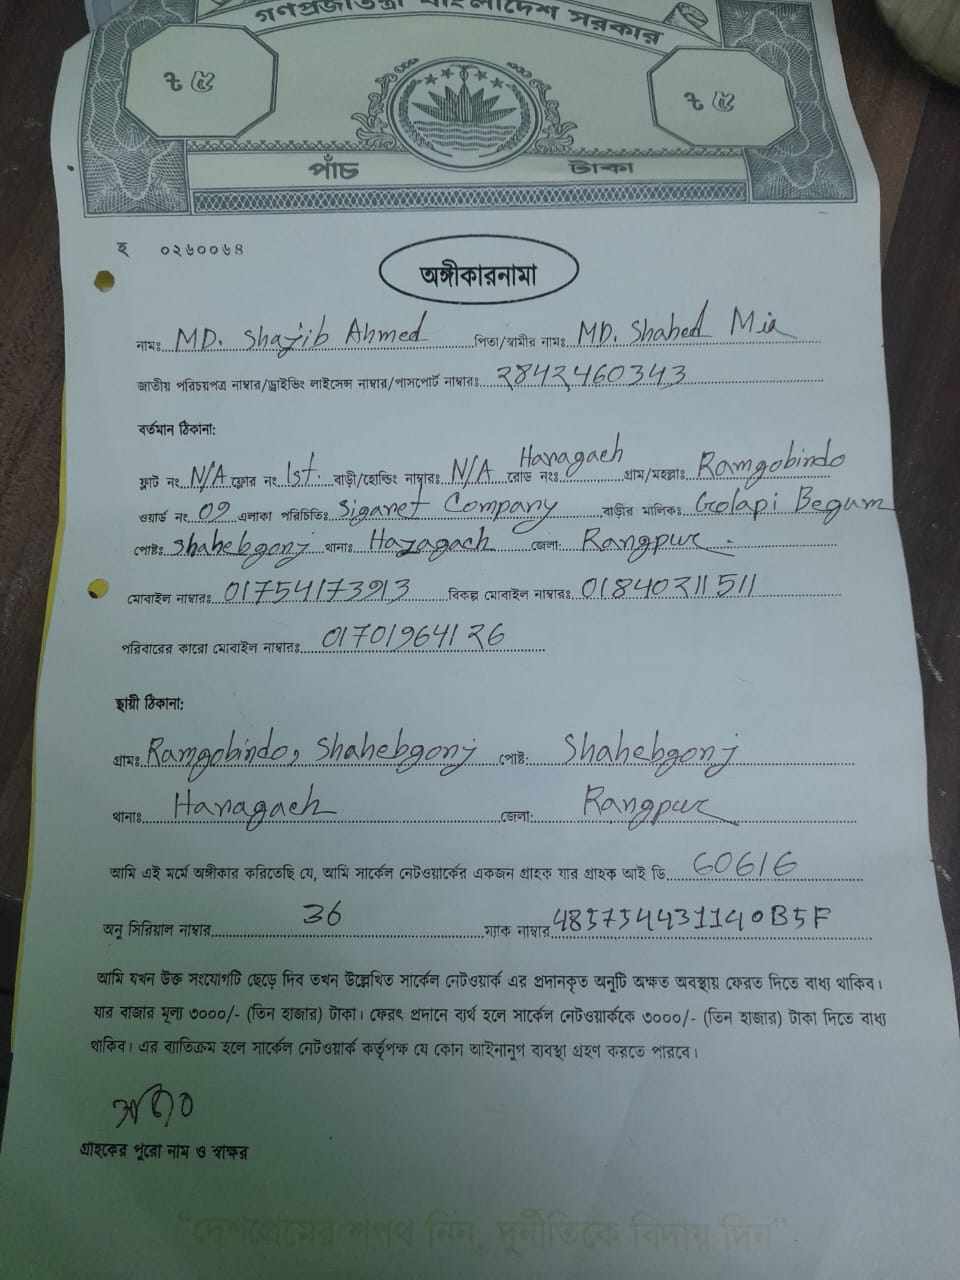 গণপ্রজাতন্ত্রী বাংলাদেশ সরকার
ট ৫ ট ৫
পাঁচ টাকা
হ ০২৬০০৬৪
অঙ্গীকারনামা
নামঃ MD. Shajib Ahmed পিতা/স্বামীর নামঃ MD. Shahed Mia
জাতীয় পরিচয়পত্র নাম্বার/ড্রাইভিং লাইসেন্স নাম্বার/পাসপোর্ট নাম্বারঃ 2842460343
বর্তমান ঠিকানা:
ফ্লাট নং N/A ফ্লোর নং 1st. বাড়ী/হোল্ডিং নাম্বারঃ N/A রোড নংঃ Haragach গ্রাম/মহল্লাঃ Ramgobindo
ওয়ার্ড নং 09 এলাকা পরিচিতিঃ Sigaret Company বাড়ীর মালিকঃ Golapi Begum
পোষ্টঃ Shahebgonj থানাঃ Haragach জেলা: Rangpur.
মোবাইল নাম্বারঃ 01754173913 বিকল্প মোবাইল নাম্বারঃ 01840211511
পরিবারের কারো মোবাইল নাম্বারঃ 01701964126
স্থায়ী ঠিকানা:
গ্রামঃ Ramgobindo, Shahebgonj পোষ্ট: Shahebgonj
থানাঃ Haragach জেলা: Rangpur
আমি এই মর্মে অঙ্গীকার করিতেছি যে, আমি সার্কেল নেটওয়ার্কের একজন গ্রাহক যার গ্রাহক আই ডি 60616
অনু সিরিয়াল নাম্বার 36 ম্যাক নাম্বার 485754431140B5F
আমি যখন উক্ত সংযোগটি ছেড়ে দিব তখন উল্লেখিত সার্কেল নেটওয়ার্ক এর প্রদানকৃত অনুটি অক্ষত অবস্থায় ফেরত দিতে বাধ্য থাকিব।
যার বাজার মূল্য ৩০০০/- (তিন হাজার) টাকা। ফেরৎ প্রদানে ব্যর্থ হলে সার্কেল নেটওয়ার্ককে ৩০০০/- (তিন হাজার) টাকা দিতে বাধ্য
থাকিব। এর ব্যতিক্রম হলে সার্কেল নেটওয়ার্ক কর্তৃপক্ষ যে কোন আইনানুগ ব্যবস্থা গ্রহণ করতে পারবে।
গ্রাহকের পুরো নাম ও স্বাক্ষর
“দেশপ্রেমের শপথ নিন, দুর্নীতিকে বিদায় দিন”